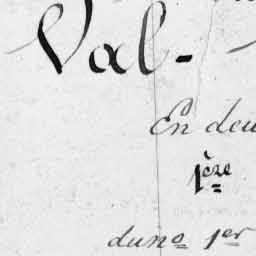 Val-
En deu
1ère
du no 1er